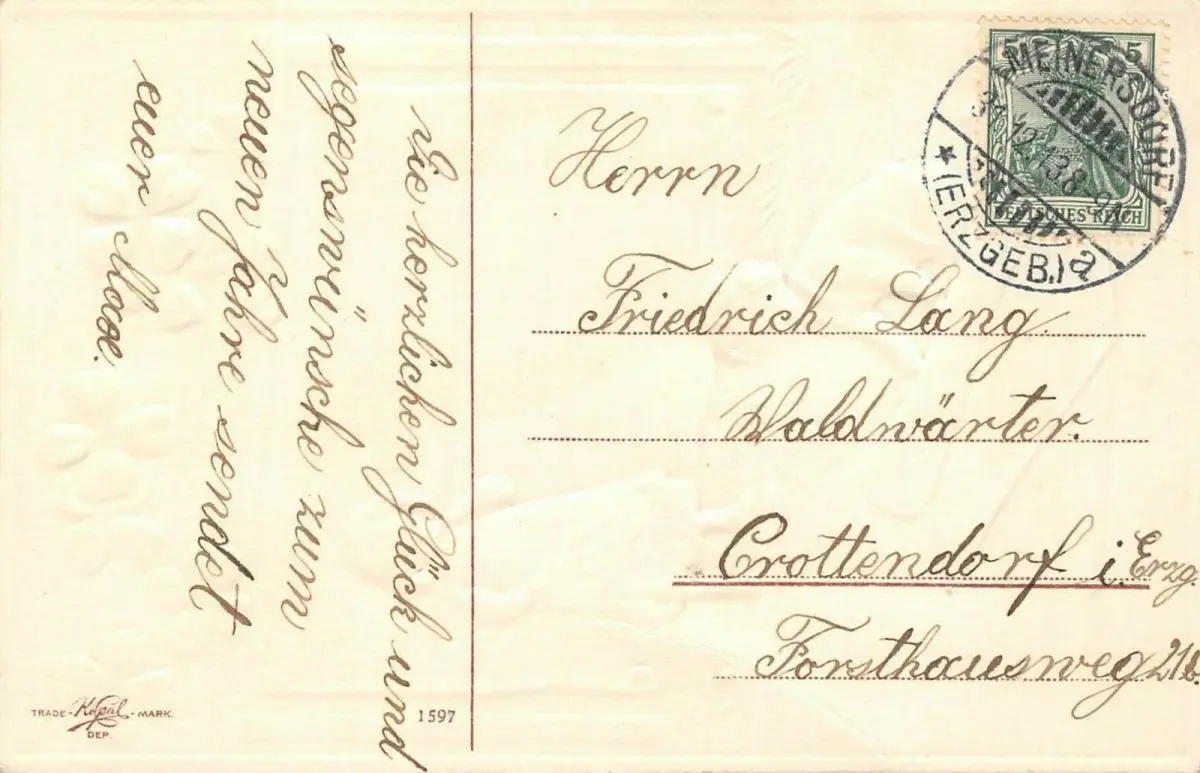 Die herzlichen Glück und
segenswünsche zum
neuen Jahre sendet
euer Max.
Herrn
Friedrich Lang.
Waldwärter.
Crottendorf i. Erzg.
Forsthausweg 21b.
5 5
DEUTSCHES REICH
MEINERSDORF
31.12.13.8-9N
* (ERZGEB.) a
TRADE - Kopal - MARK.
DEP.
1597